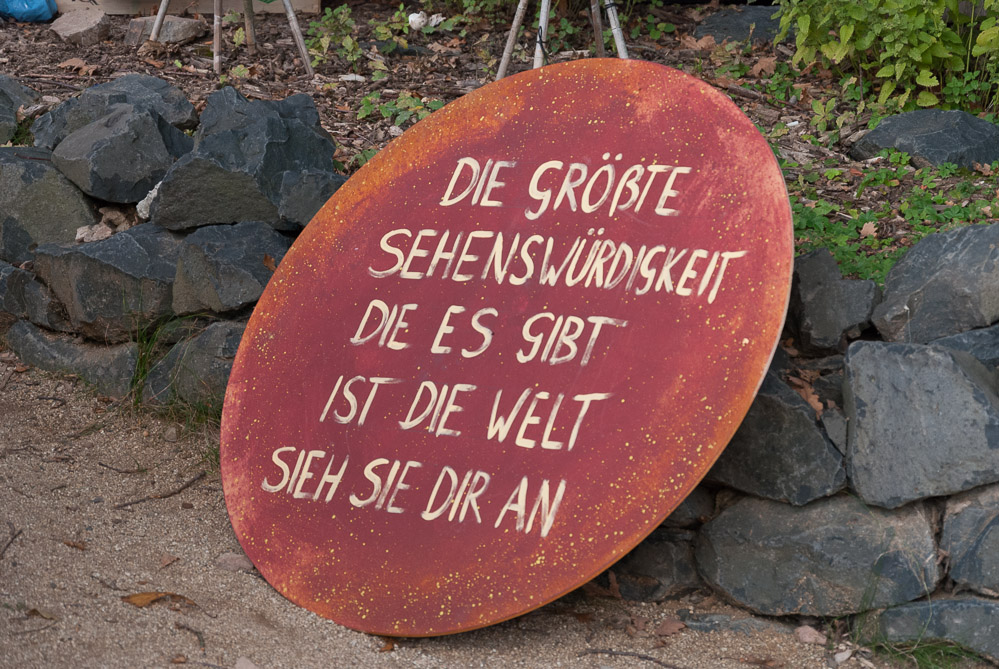 DIE GRÖßTE
SEHENSWÜRDIGKEIT
DIE ES GIBT
IST DIE WELT
SIEH SIE DIR AN